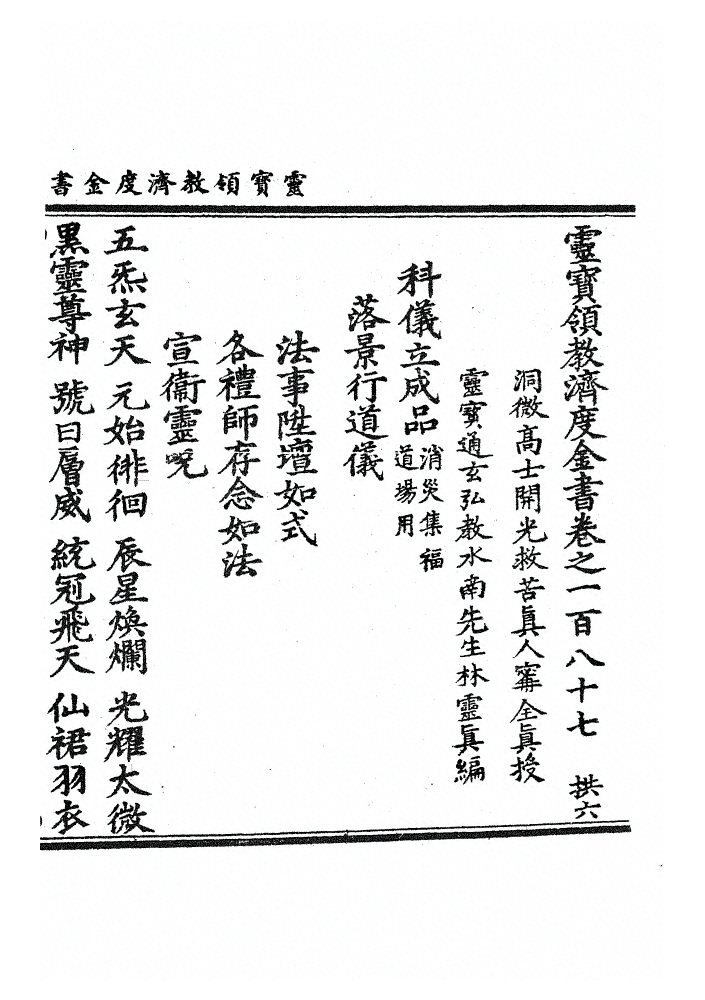 靈寶領教濟度金書
靈寶領教濟度金書卷之一百八十七　拱六
洞微高士開光救苦眞人寗全眞授
靈寶通玄弘教水南先生林靈眞編
科儀立成品 消災集福道場用
落景行道儀
法事陞壇如式
各禮師存念如法
宣衞靈咒
五炁玄天　元始徘徊　辰星煥爛　光耀太微
黑靈尊神　號曰層威　統冠飛天　仙裙羽衣